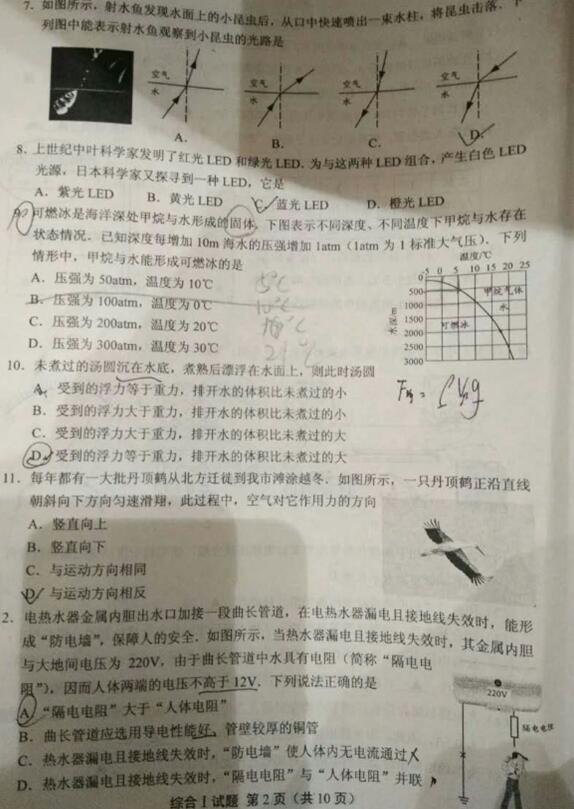 7. 如图所示，射水鱼发现水面上的小昆虫后，从口中快速喷出一束水柱，将昆虫击落．下
列图中能表示射水鱼观察到小昆虫的光路是
空气 空气 空气 空气
水 水 水 水
A. B. C. D.
8. 上世纪中叶科学家发明了红光 LED 和绿光 LED．为与这两种 LED 组合，产生白色 LED
光源，日本科学家又探寻到一种 LED，它是
A．紫光 LED B．黄光 LED C．蓝光 LED D．橙光 LED
9. 可燃冰是海洋深处甲烷与水形成的固体．下图表示不同深度、不同温度下甲烷与水存在
状态情况．已知深度每增加 10m 海水的压强增加 1atm（1atm 为 1 标准大气压）．下列
情形中，甲烷与水能形成可燃冰的是
A．压强为 50atm，温度为 10℃
B．压强为 100atm，温度为 0℃
C．压强为 200atm，温度为 20℃
D．压强为 300atm，温度为 30℃
温度/℃
-5 0 5 10 15 20 25
0
500
1000
1500
2000
2500
3000
水深/m
甲烷气体
水
可燃冰
10．未煮过的汤圆沉在水底，煮熟后漂浮在水面上，则此时汤圆
A．受到的浮力等于重力，排开水的体积比未煮过的小
B．受到的浮力大于重力，排开水的体积比未煮过的小
C．受到的浮力大于重力，排开水的体积比未煮过的大
D．受到的浮力等于重力，排开水的体积比未煮过的大
11．每年都有一大批丹顶鹤从北方迁徙到我市滩涂越冬．如图所示，一只丹顶鹤正沿直线
朝斜向下方向匀速滑翔，此过程中，空气对它作用力的方向
A．竖直向上
B．竖直向下
C．与运动方向相同
D．与运动方向相反
2．电热水器金属内胆出水口加接一段曲长管道，在电热水器漏电且接地线失效时，能形
成“防电墙”，保障人的安全．如图所示，当热水器漏电且接地线失效时，其金属内胆
与大地间电压为 220V，由于曲长管道中水具有电阻（简称“隔电电
阻”），因而人体两端的电压不高于 12V．下列说法正确的是
A．“隔电电阻”大于“人体电阻”
B．曲长管道应选用导电性能好、管壁较厚的铜管
C．热水器漏电且接地线失效时，“防电墙”使人体内无电流通过
D．热水器漏电且接地线失效时，“隔电电阻”与“人体电阻”并联
220V
隔电电阻
综合 I 试题 第 2 页（共 10 页）